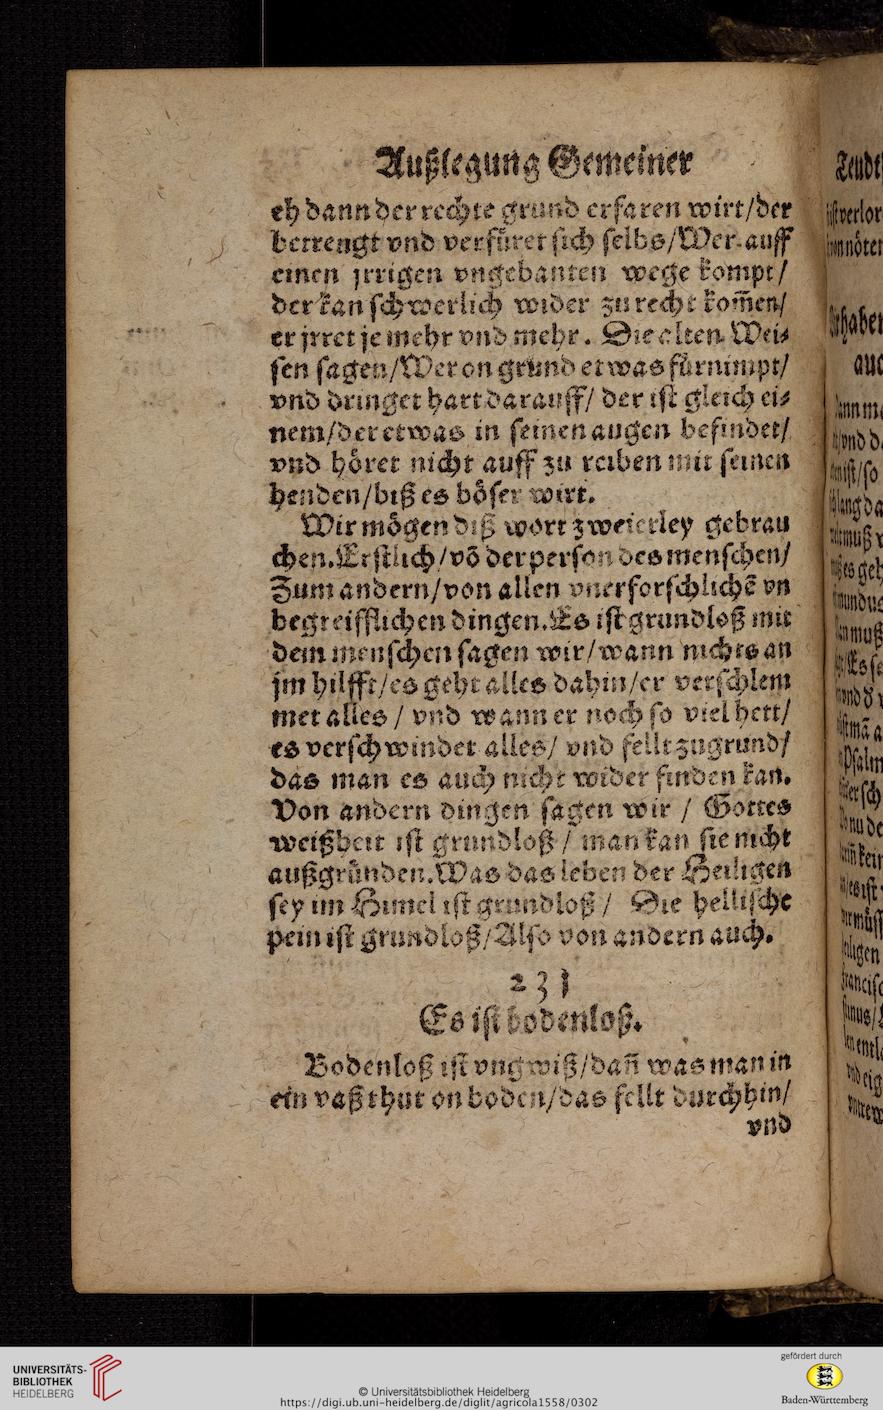 Außlegung Gemeiner
eh dann der rechte grund erfaren wirt/der
berrengt vnd verfüret sich selbs/Wer auff
einen jrrigen vngebanten wege kompt/
der kan schwerlich wider zu recht kom̃en/
er jrret je mehr vnd mehr. Die alten Wei⸗
sen sagen/Wer on grund etwas fürnimpt/
vnd dringet hart darauff/ der ist gleich ei⸗
nem/der etwas in seinen augen befindet/
vnd höret nicht auff zu reiben mit seinen
henden/biß es böser wirt.
Wir mögen diß wort zweierley gebrau
chen. Erstlich/võ der person des menschen/
Zum andern/von allen vnerforschlichẽ vn
begreifflichen dingen. Es ist grundloß mit
dem menschen sagen wir/wann nichts an
jm hilfft/es geht alles dahin/er verschlem
met alles / vnd wann er noch so viel hett/
es verschwindet alles/ vnd fellt zugrund/
das man es auch nicht wider finden kan.
Von andern dingen sagen wir / Gottes
weißheit ist grundloß / man kan sie nicht
außgründen. Was das leben der Heiligen
sey im Himel ist grundloß / Die hellische
pein ist grundloß/Also von andern auch.
231
Es ist bodenloß.
Bodenloß ist vngwiß/dañ was man in
ein vaß thut on boden/das fellt durchhin/
vnd
UNIVERSITÄTS-
BIBLIOTHEK
HEIDELBERG
© Universitätsbibliothek Heidelberg
https://digi.ub.uni-heidelberg.de/diglit/agricola1558/0302
gefördert durch
Baden-Württemberg